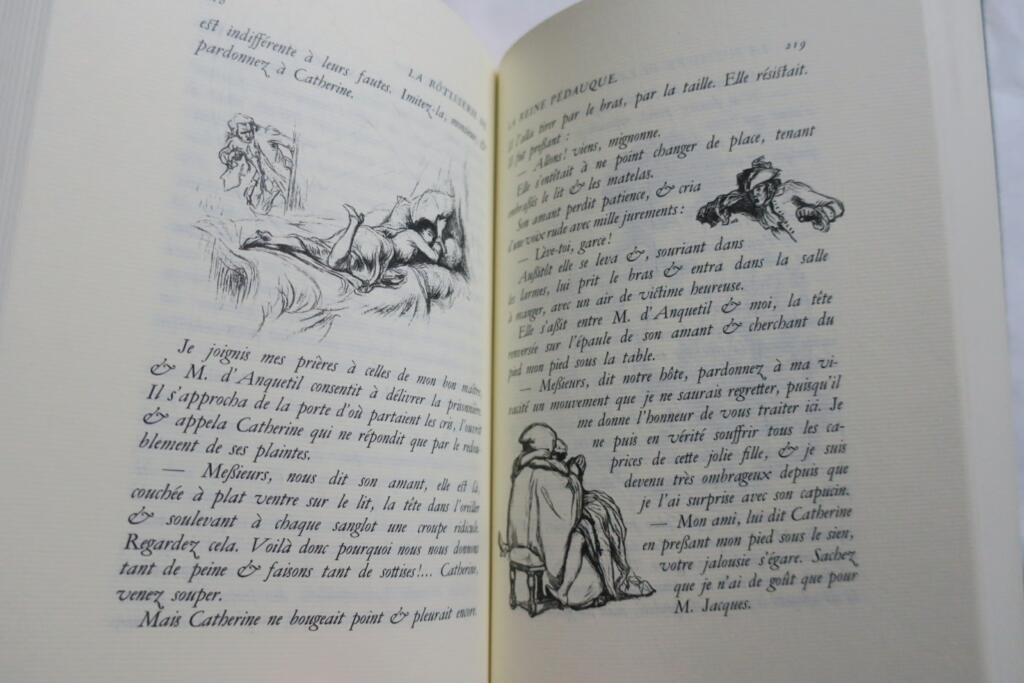 LA RÔTISSERIE DE
est indifférente à leurs fautes. Imitez-la, monsieur &
pardonnez à Catherine.
Je joignis mes prières à celles de mon bon maître,
& M. d'Anquetil consentit à délivrer la prisonnière.
Il s'approcha de la porte d'où partaient les cris, l'ouvrit
& appela Catherine qui ne répondit que par le redou-
blement de ses plaintes.
— Meßieurs, nous dit son amant, elle est là,
couchée à plat ventre sur le lit, la tête dans l'oreiller
& soulevant à chaque sanglot une croupe ridicule.
Regardez cela. Voilà donc pourquoi nous nous donnons
tant de peine & faisons tant de sottises!... Catherine,
venez souper.
Mais Catherine ne bougeait point & pleurait encore.
LA REINE PÉDAUQUE.
219
Il l'alla tirer par le bras, par la taille. Elle résistait.
Il fut preßant :
— Allons! viens, mignonne.
Elle s'entêtait à ne point changer de place, tenant
embraßés le lit & les matelas.
Son amant perdit patience, & cria
d'une voix rude avec mille jurements :
— Lève-toi, garce!
Außitôt elle se leva &, souriant dans
les larmes, lui prit le bras & entra dans la salle
à manger, avec un air de victime heureuse.
Elle s'aßit entre M. d'Anquetil & moi, la tête
renversée sur l'épaule de son amant & cherchant du
pied mon pied sous la table.
— Meßieurs, dit notre hôte, pardonnez à ma vi-
vacité un mouvement que je ne saurais regretter, puisqu'il
me donne l'honneur de vous traiter ici. Je
ne puis en vérité souffrir tous les ca-
prices de cette jolie fille, & je suis
devenu très ombrageux depuis que
je l'ai surprise avec son capucin.
— Mon ami, lui dit Catherine
en preßant mon pied sous le sien,
votre jalousie s'égare. Sachez
que je n'ai de goût que pour
M. Jacques.